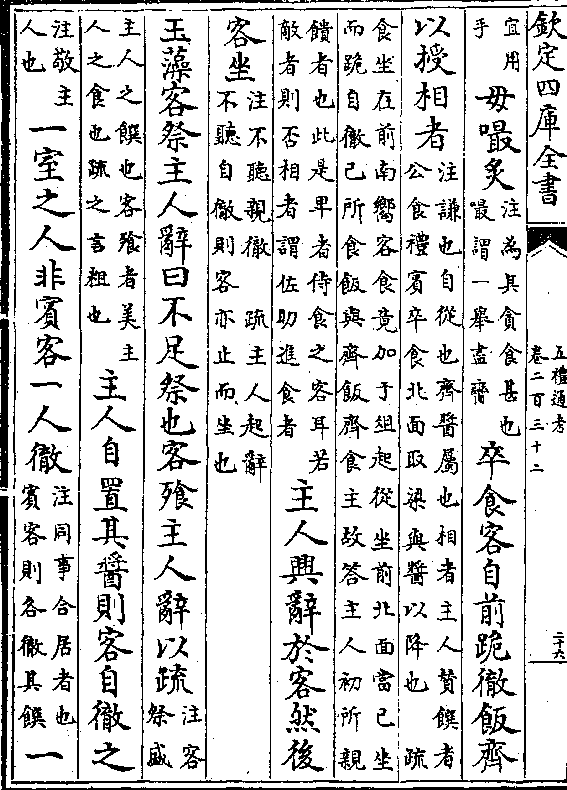 欽定四庫全書
五禮通考
卷二百三十二
二十六
宜用
手
毋嘬炙
注為其貪食甚也
嘬謂一舉盡臠
卒食客自前跪徹飯齊
以授相者
注謙也自從也齊醬屬也相者主人贊饌者
公食禮賓卒食北面取粱與醬以降也 疏
食坐在前南嚮客食竟加于俎起從坐前北面當己坐
而跪自徹己所食飯與齊飯齊食主故答主人初所親
饋者也此是卑者侍食之客耳若
敵者則否相者謂佐助進食者
主人興辭於客然後
客坐
注不聽親徹 疏主人起辭
不聽自徹則客亦止而坐也
玉藻客祭主人辭曰不足祭也客飱主人辭以疏
注客
祭盛
主人之饌也客飱者美主
人之食也疏之言粗也
主人自置其醬則客自徹之
注敬主
人也
一室之人非賓客一人徹
注同事合居者也
賓客則各徹其饌
一